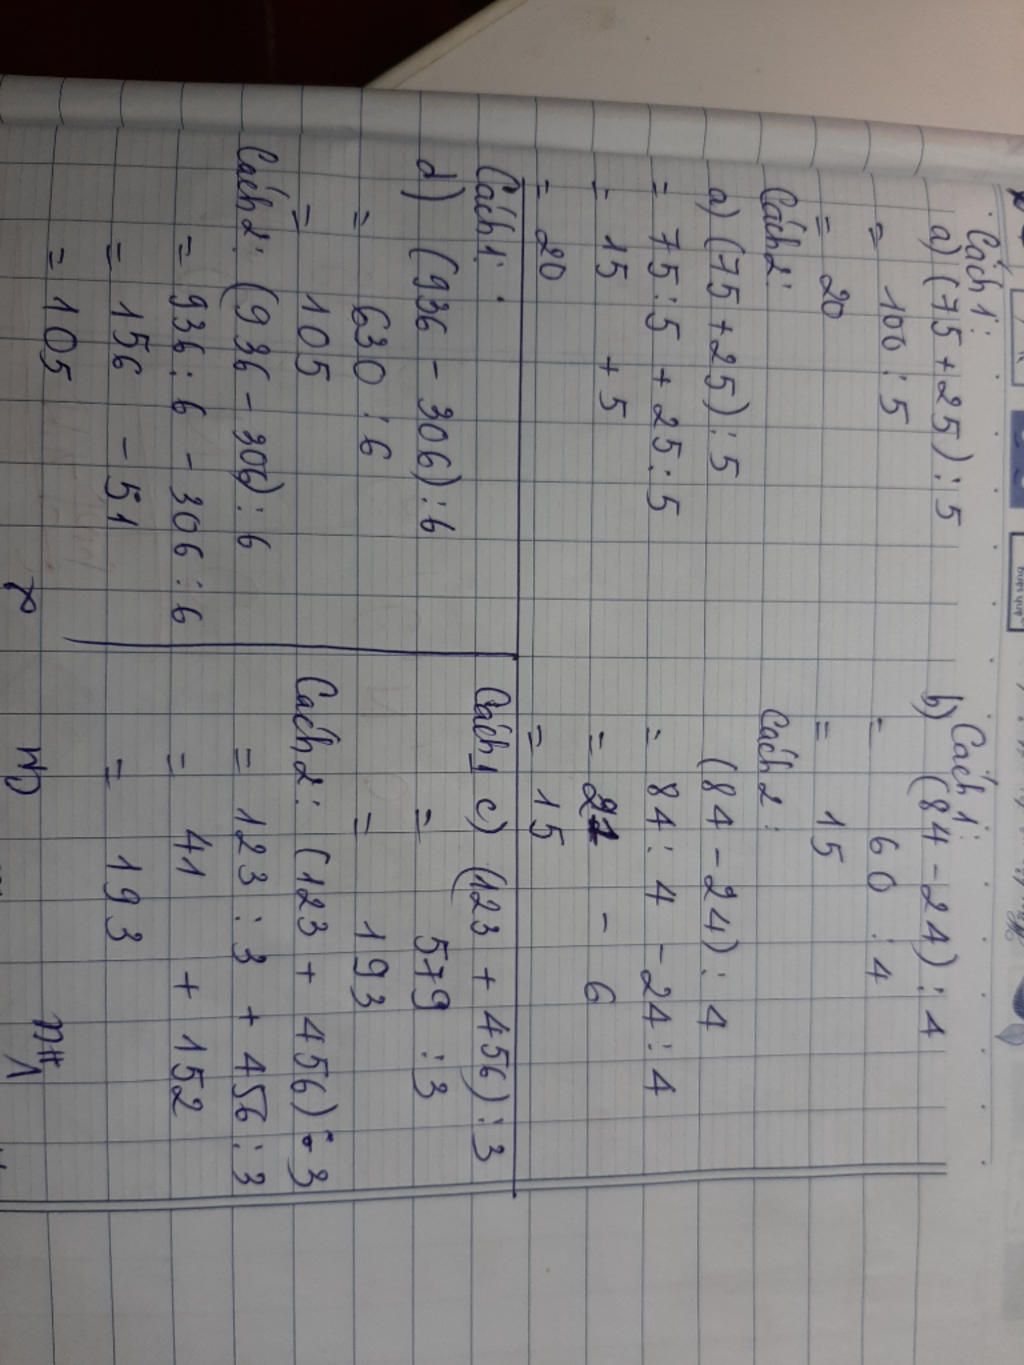 Cách 1:
a) (75 + 25) : 5
= 100 : 5
= 20
Cách 2:
a) (75 + 25) : 5
= 75 : 5 + 25 : 5
= 15 + 5
= 20
Cách 1:
b) (84 - 24) : 4
= 60 : 4
= 15
Cách 2:
(84 - 24) : 4
= 84 : 4 - 24 : 4
= 21 - 6
= 15
Cách 1:
d) (936 - 306) : 6
= 630 : 6
= 105
Cách 2: (936 - 306) : 6
= 936 : 6 - 306 : 6
= 156 - 51
= 105
Cách 1 c) (123 + 456) : 3
= 579 : 3
= 193
Cách 2: (123 + 456) : 3
= 123 : 3 + 456 : 3
= 41 + 152
= 193